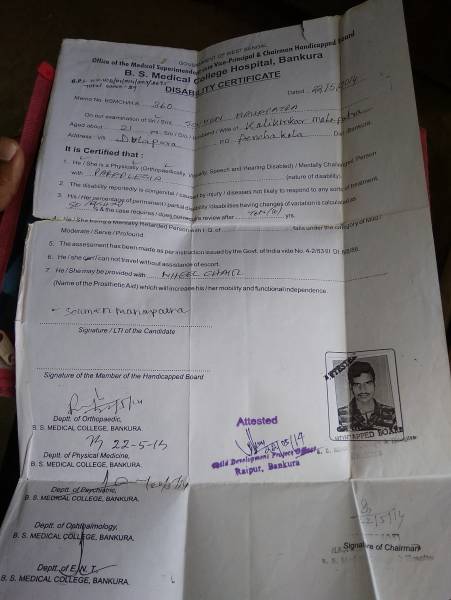 GOVERNMENT OF WEST BENGAL
Office of the Medical Superintendent Vice-Principal & Chairman Handicapped Board
B. S. Medical College Hospital, Bankura
DISABILITY CERTIFICATE
Dated 22/5/2014
Memo No. BSMCH/H.B. 360
On due examination of Sri / Smt. SOUMEN MAHAPATRA
Aged about 21 yrs. S/o / D/o / Husband / Wife of Kalikinkar Mahapatra
Address - Vill. PO Dist. Bankura.
It is Certified that :
1. He / She is a Physically (Orthopaedically, Visually, Speech and Hearing Disabled) / Mentally Challenged, Person
with PARAPLEGIA (nature of disability).
2. The disability reportedly is congenital / caused by injury / diseases not likely to respond to any sorts of treatment.
3. His / Her percentage of permanent / partial disability (disabilities having changes of variation is calculated as
% & the case requires / does require review after yrs.
4. He / She being a Mentally Retarded Person with I. Q. of falls under the category of Mild /
Moderate / Serve / Profound
5. The assessment has been made as per instruction issued by the Govt. of India vide No. 4-2/83
6. He / she can / can not travel without assistance of escort.
7. He / She may be provided with WHEEL CHAIR
(Name of the Prosthetic Aid) which will increase his / her mobility and functional independence.
Soumen Mahapatra
Signature / LTI of the Candidate
Signature of the Member of the Handicapped Board
Deptt. of Orthopaedic,
B. S. MEDICAL COLLEGE, BANKURA.
22-5-14
Deptt. of Physical Medicine,
B. S. MEDICAL COLLEGE, BANKURA.
Deptt. of Psychatric,
B. S. MEDICAL COLLEGE, BANKURA.
Deptt. of Ophthalmology,
B. S. MEDICAL COLLEGE, BANKURA.
Deptt. of E. N. T.
B. S. MEDICAL COLLEGE, BANKURA.
Attested
Child Development Project Officer
Raipur, Bankura
ATTESTED
HANDICAPPED BOARD
Signature of Chairman